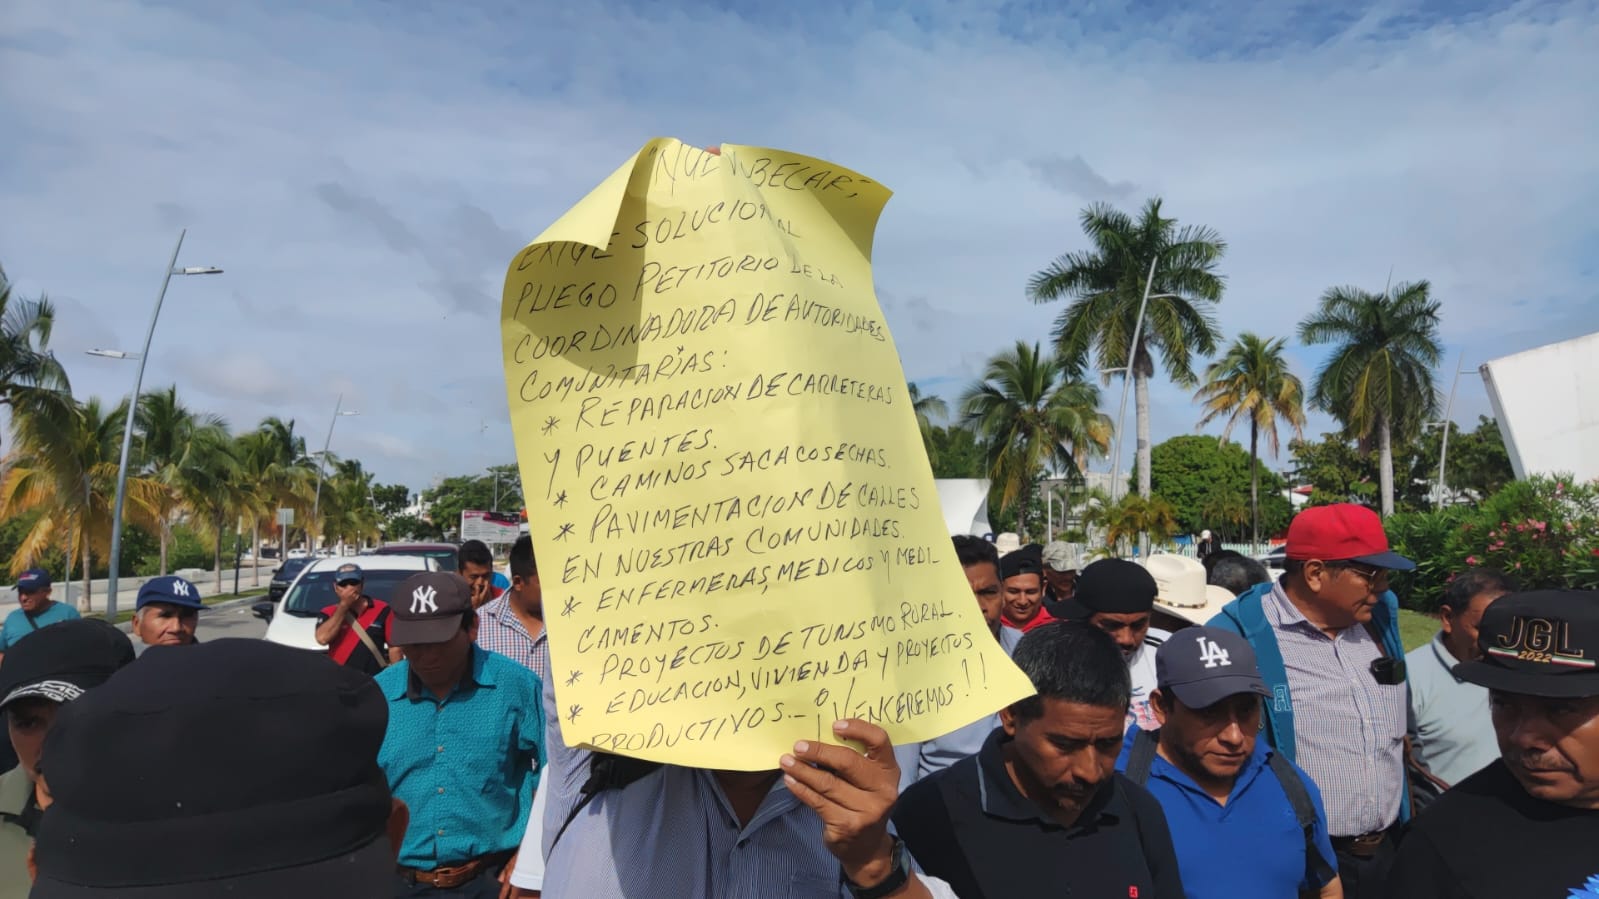 "NUEV BECAR,
EXIGE SOLUCION AL
PLIEGO PETITORIO DE LA
COORDINADORA DE AUTORIDADES
COMUNITARIAS:
* REPARACION DE CARRETERAS
Y PUENTES.
* CAMINOS SACACOSECHAS.
* PAVIMENTACION DE CALLES
EN NUESTRAS COMUNIDADES.
* ENFERMERAS, MEDICOS Y MEDI
CAMENTOS.
* PROYECTOS DE TURISMO RURAL.
* EDUCACION, VIVIENDA Y PROYECTOS
PRODUCTIVOS.- ¡¡VENCEREMOS!!
NY
NY
LA
JGL
2022